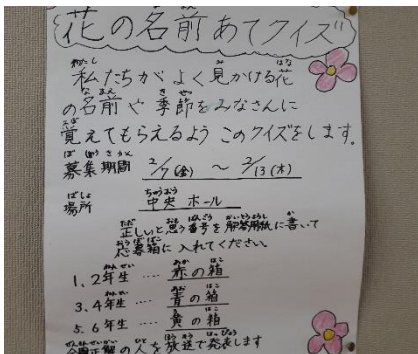 花の名前あてクイズ
私たちがよく見かける花
の名前や季節をみなさんに
覚えてもらえるよう このクイズをします。
募集期間 2/7(金) ~ 2/13(木)
場所 中央ホール
正しいと思う番号を解答用紙に書いて
応募箱に入れてください。
1.2年生 ‥‥ 赤の箱
3.4年生 ‥‥ 青の箱
5.6年生 ‥‥ 黄の箱
全問正解の人を放送で発表します